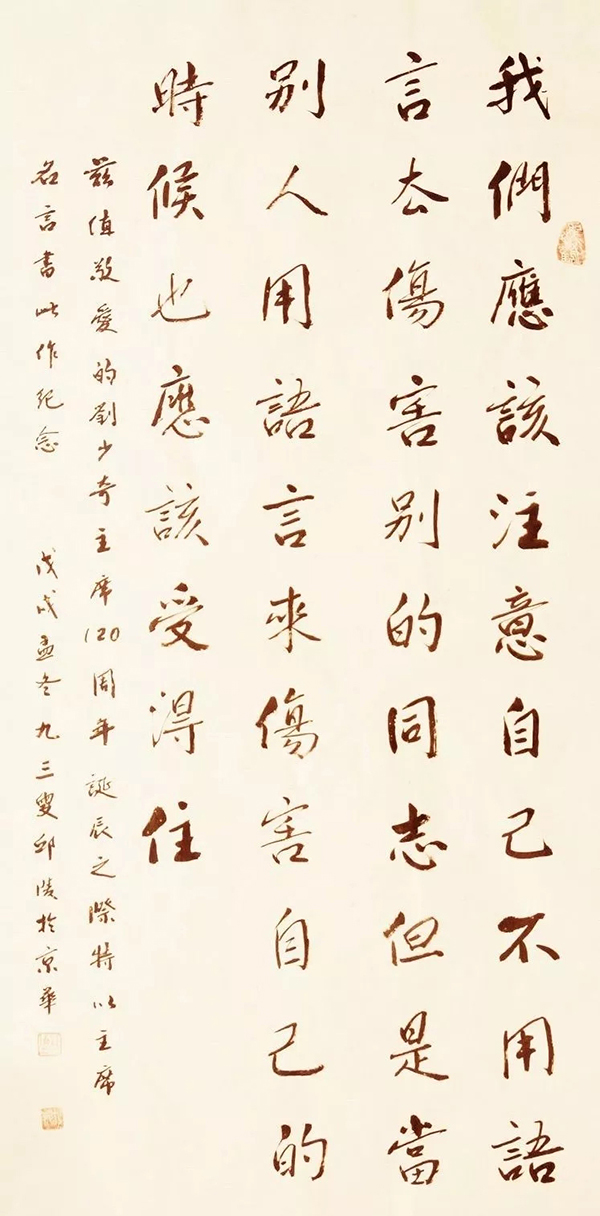 我們應該注意自己不用語
言去傷害别的同志但是當
别人用語言來傷害自己的
時候也應該受得住
兹值敬愛的劉少奇主席120周年誕辰之際特以主席
名言書此作紀念 戊戌孟冬九三叟邱陵於京華